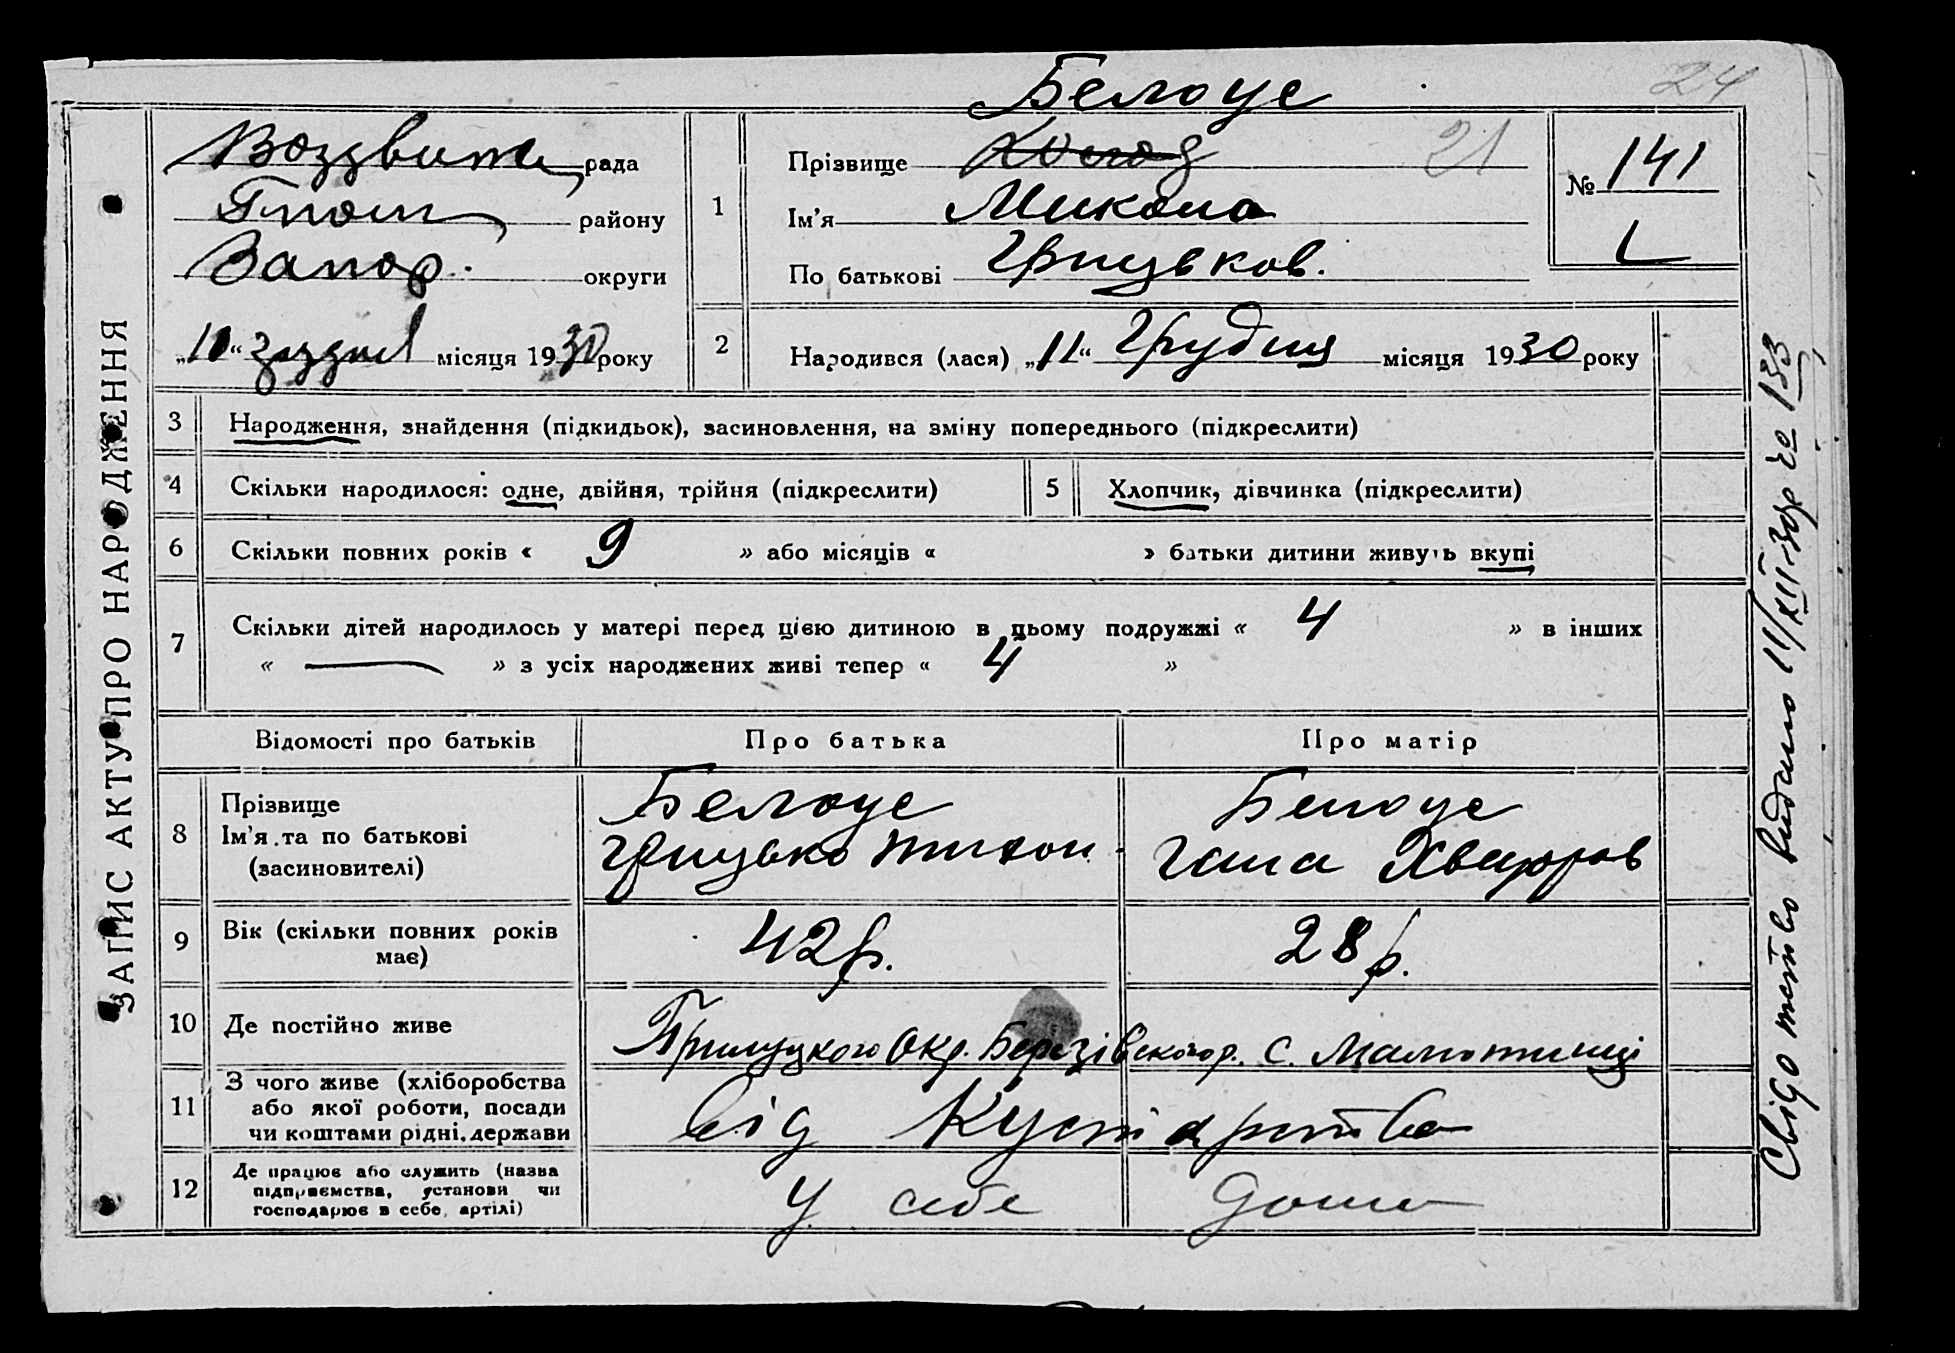 24
Белоус
Воздвиж рада
району
Запор. округи
„ “ місяця 1930 року
1
Прізвище 21
Ім'я Микола
По батькові Грицьков.
№ 141
2
Народився (лася) „11“ Грудня місяця 1930 року
ЗАПИС АКТУ ПРО НАРОДЖЕННЯ
3 Народження, знайдення (підкидьок), засиновлення, на зміну попереднього (підкреслити)
4 Скільки народилося: одне, двійня, трійня (підкреслити)
5 Хлопчик, дівчинка (підкреслити)
6 Скільки повних років « 9 » або місяців « » батьки дитини живуть вкупі
7 Скільки дітей народилось у матері перед цією дитиною в цьому подружжі « 4 » в інших
« — » з усіх народжених живі тепер « 4 »
Відомості про батьків Про батька Про матір
8 Прізвище
Ім'я та по батькові
(засиновителі)
Белоус
Грицько Тихон.
Белоус
Гана Хведоров
9 Вік (скільки повних років
має)
42 р.
28 р.
10 Де постійно живе
Прилуцкого Окр. Березівского р. с.
11 З чого живе (хліборобства
або якої роботи, посади
чи коштами рідні, держави
від Кустарства
12 Де працює або служить (назва
підприємства, установи чи
господарює в себе, артілі)
у себе дома
Свідотство видано 11/XII-30р за 133